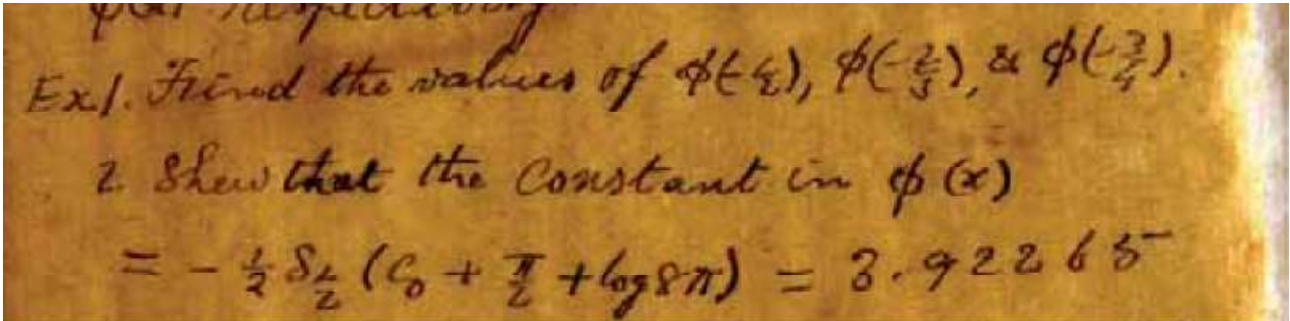 respectively
Ex.1. Find the values of ϕ(-½), ϕ(-⅔), & ϕ(-¾).
2. Shew that the constant in ϕ(x)
= - ½ S½ (C₀ + π/2 + log 8π) = 3.92265